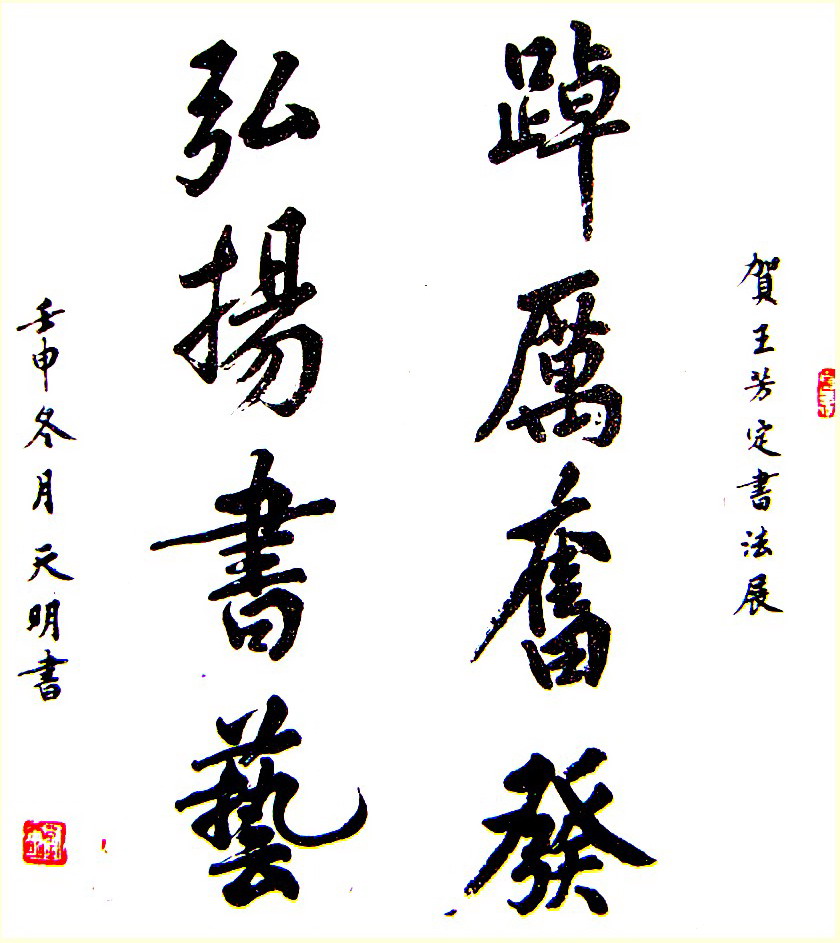 賀王芳定書法展
踔厲奮發
弘揚書藝
壬申冬月天明書